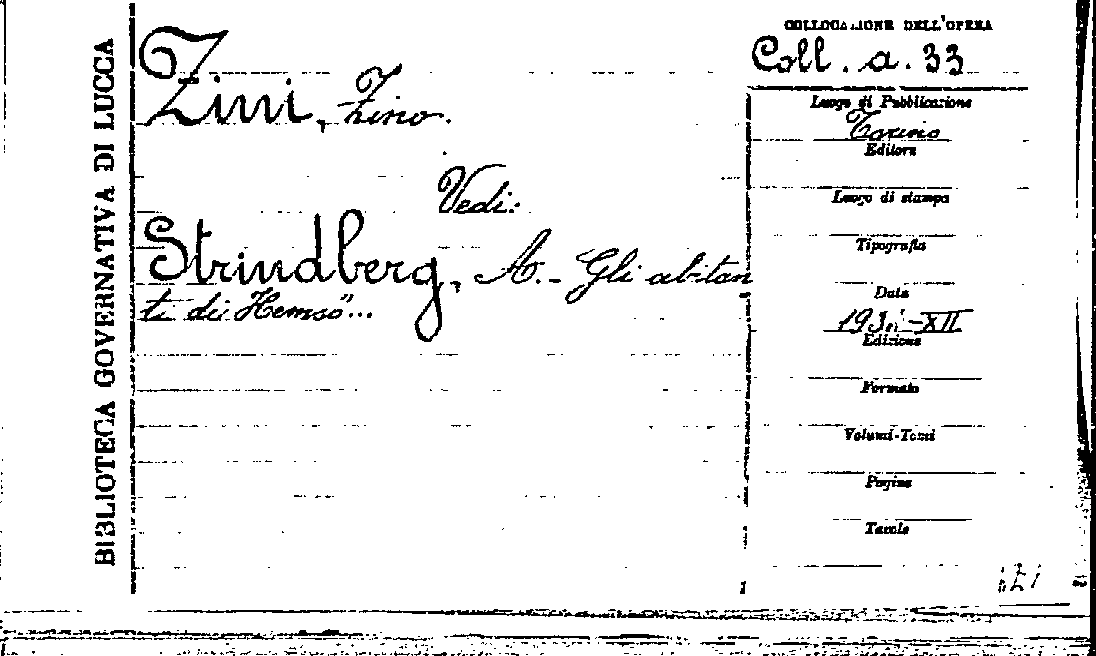 BIBLIOTECA GOVERNATIVA DI LUCCA
Zini, Zino.
Vedi:
Strindberg, A. - Gli abitan
ti di Hemsö"...
COLLOCAZIONE DELL'OPERA
Coll. a. 33
Luogo di Pubblicazione
Torino
Editore
Luogo di stampa
Tipografia
Data
-XII
Edizione
Formato
Volumi-Tomi
Pagine
Tavole